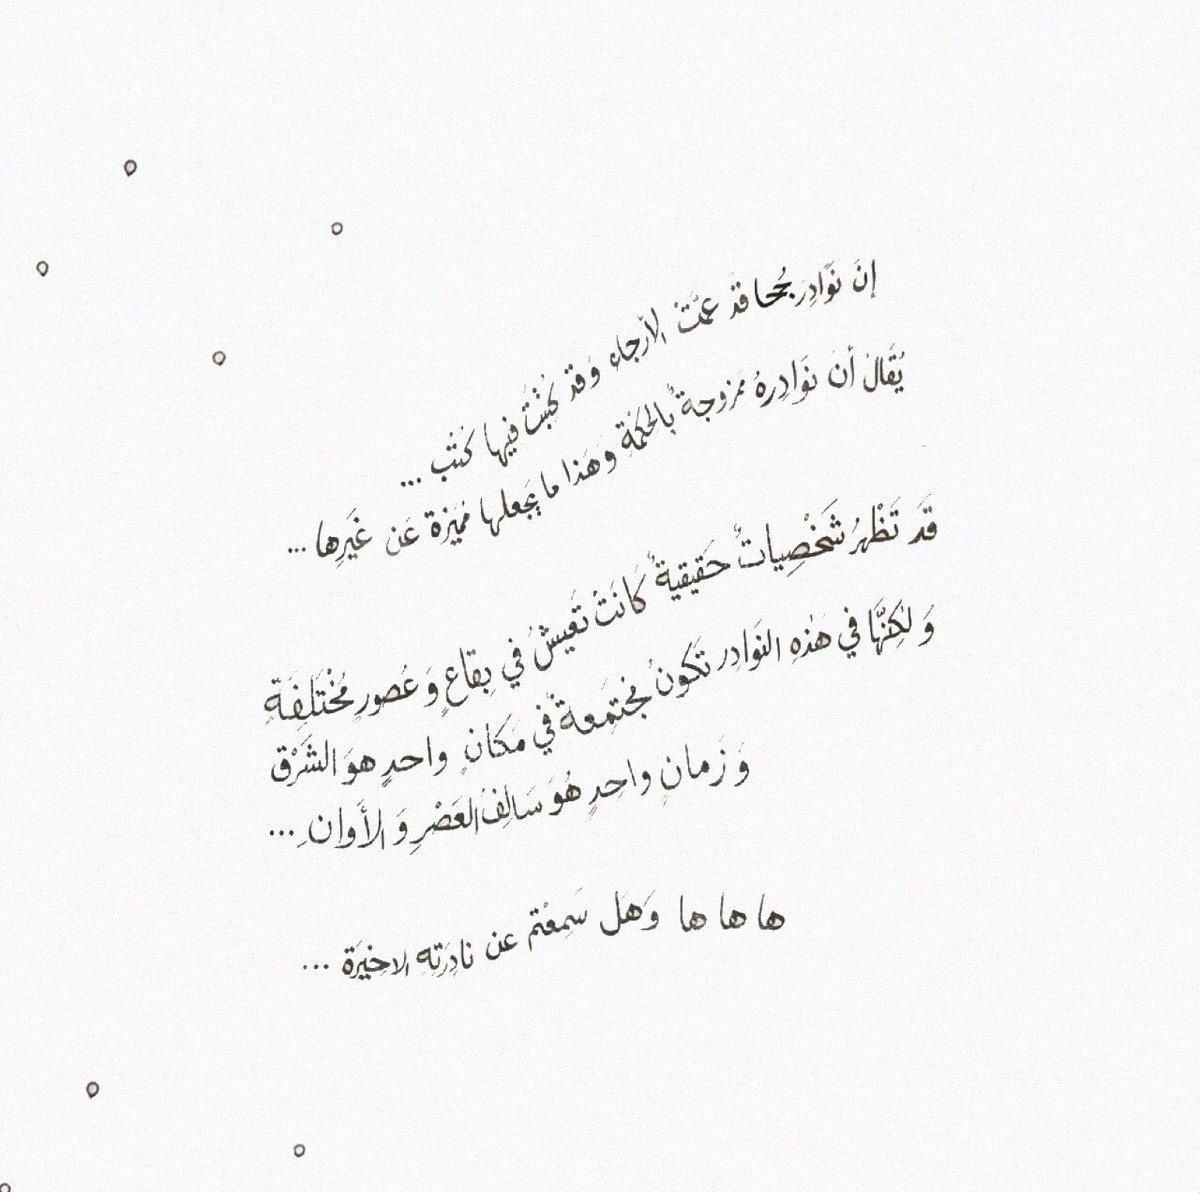 إنَّ نوَادِر جُحا قَد عمَّت الأرجاء وَقد كُتبَتْ فيها كُتُب ...
يُقَال أن نوَادِرهُ ممزوجةٌ بالحكمَة وهَذا ما يَجعلها مُميَزة عَن غَيرِها ...
قَد تَظْهرُ شَخْصِياتٌ حَقيقيةٌ كَانَتْ تَعيشُ في بِقاعٍ وَعُصورٍ مُخْتَلِفَةِ
وَلكِنَّها في هَذهِ النوَادِر تَكونُ مُجتَمعةٌ في مَكانٍ واحدٍ هوَ الشَرْق
وَزَمانٍ واحِدٍ هُوَ سَالِفُ العَصْرِ وَالأَوانِ ...
ها ها ها وَهَل سَمِعْتم عن نادِرَتِه الاخيَرة ...